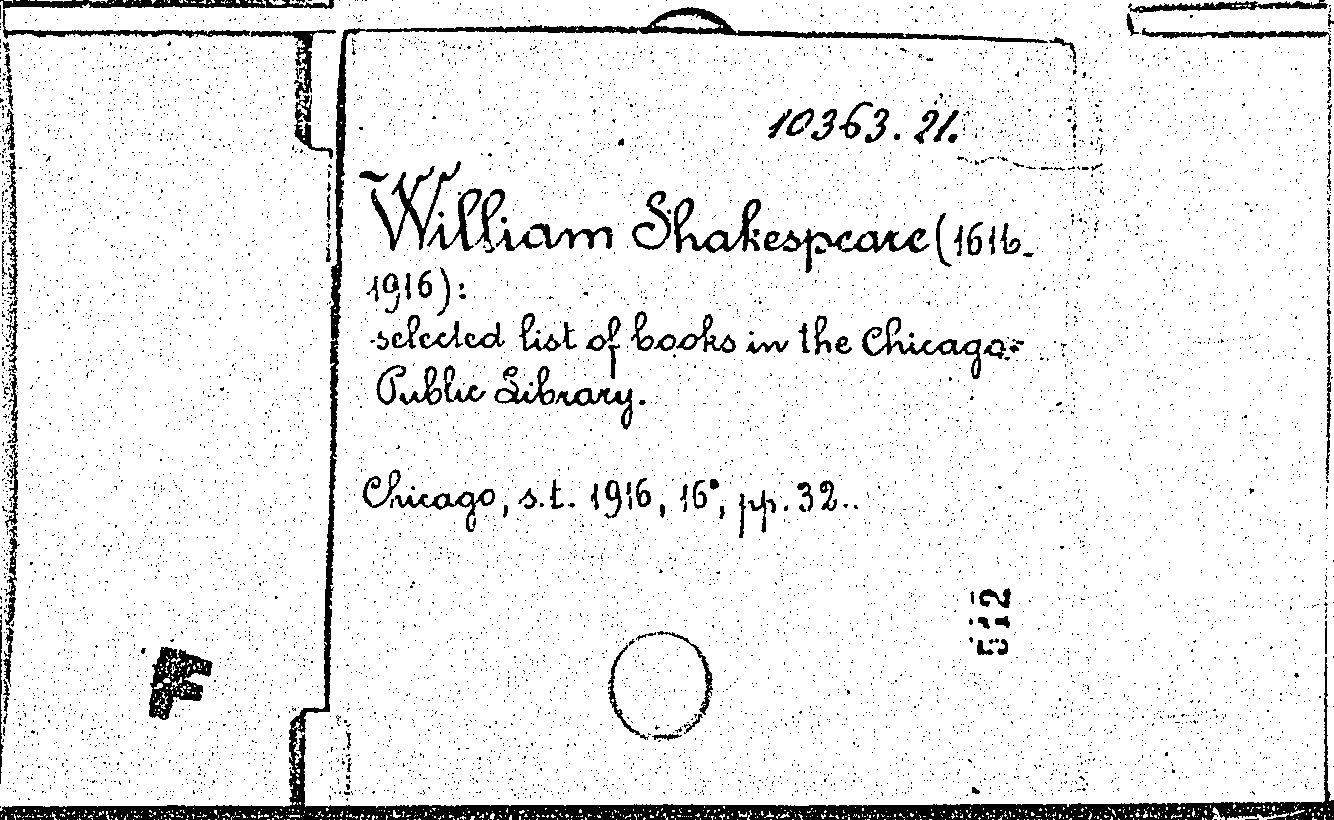 10363.21.
William Shakespeare (1616-
1916):
selected list of books in the Chicago
Public Library.
Chicago, s.t. 1916, 16°, pp. 32..
512
F